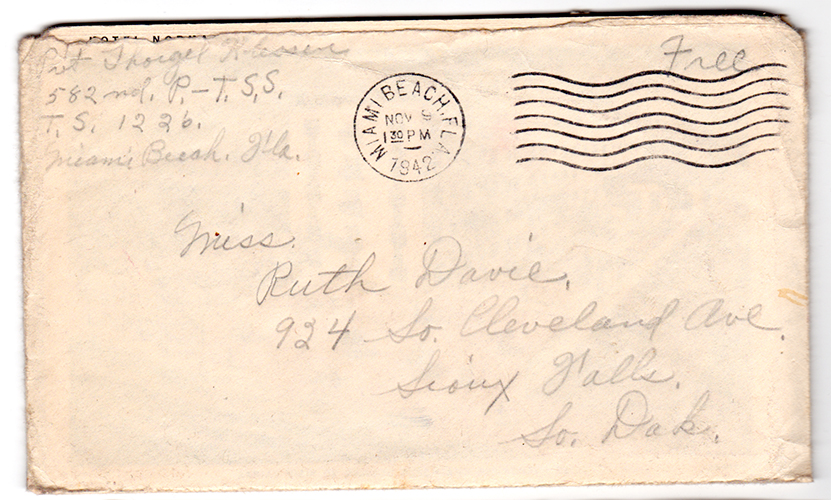 Pvt Thorgel
582 nd. P.-T.S.S.
T.S. 1226.
Miami Beach. Fla.
Free
MIAMI BEACH, FLA.
NOV 9
1 30 PM
1942
Miss.
Ruth Davie.
924 So. Cleveland Ave.
Sioux Falls.
So. Dak.